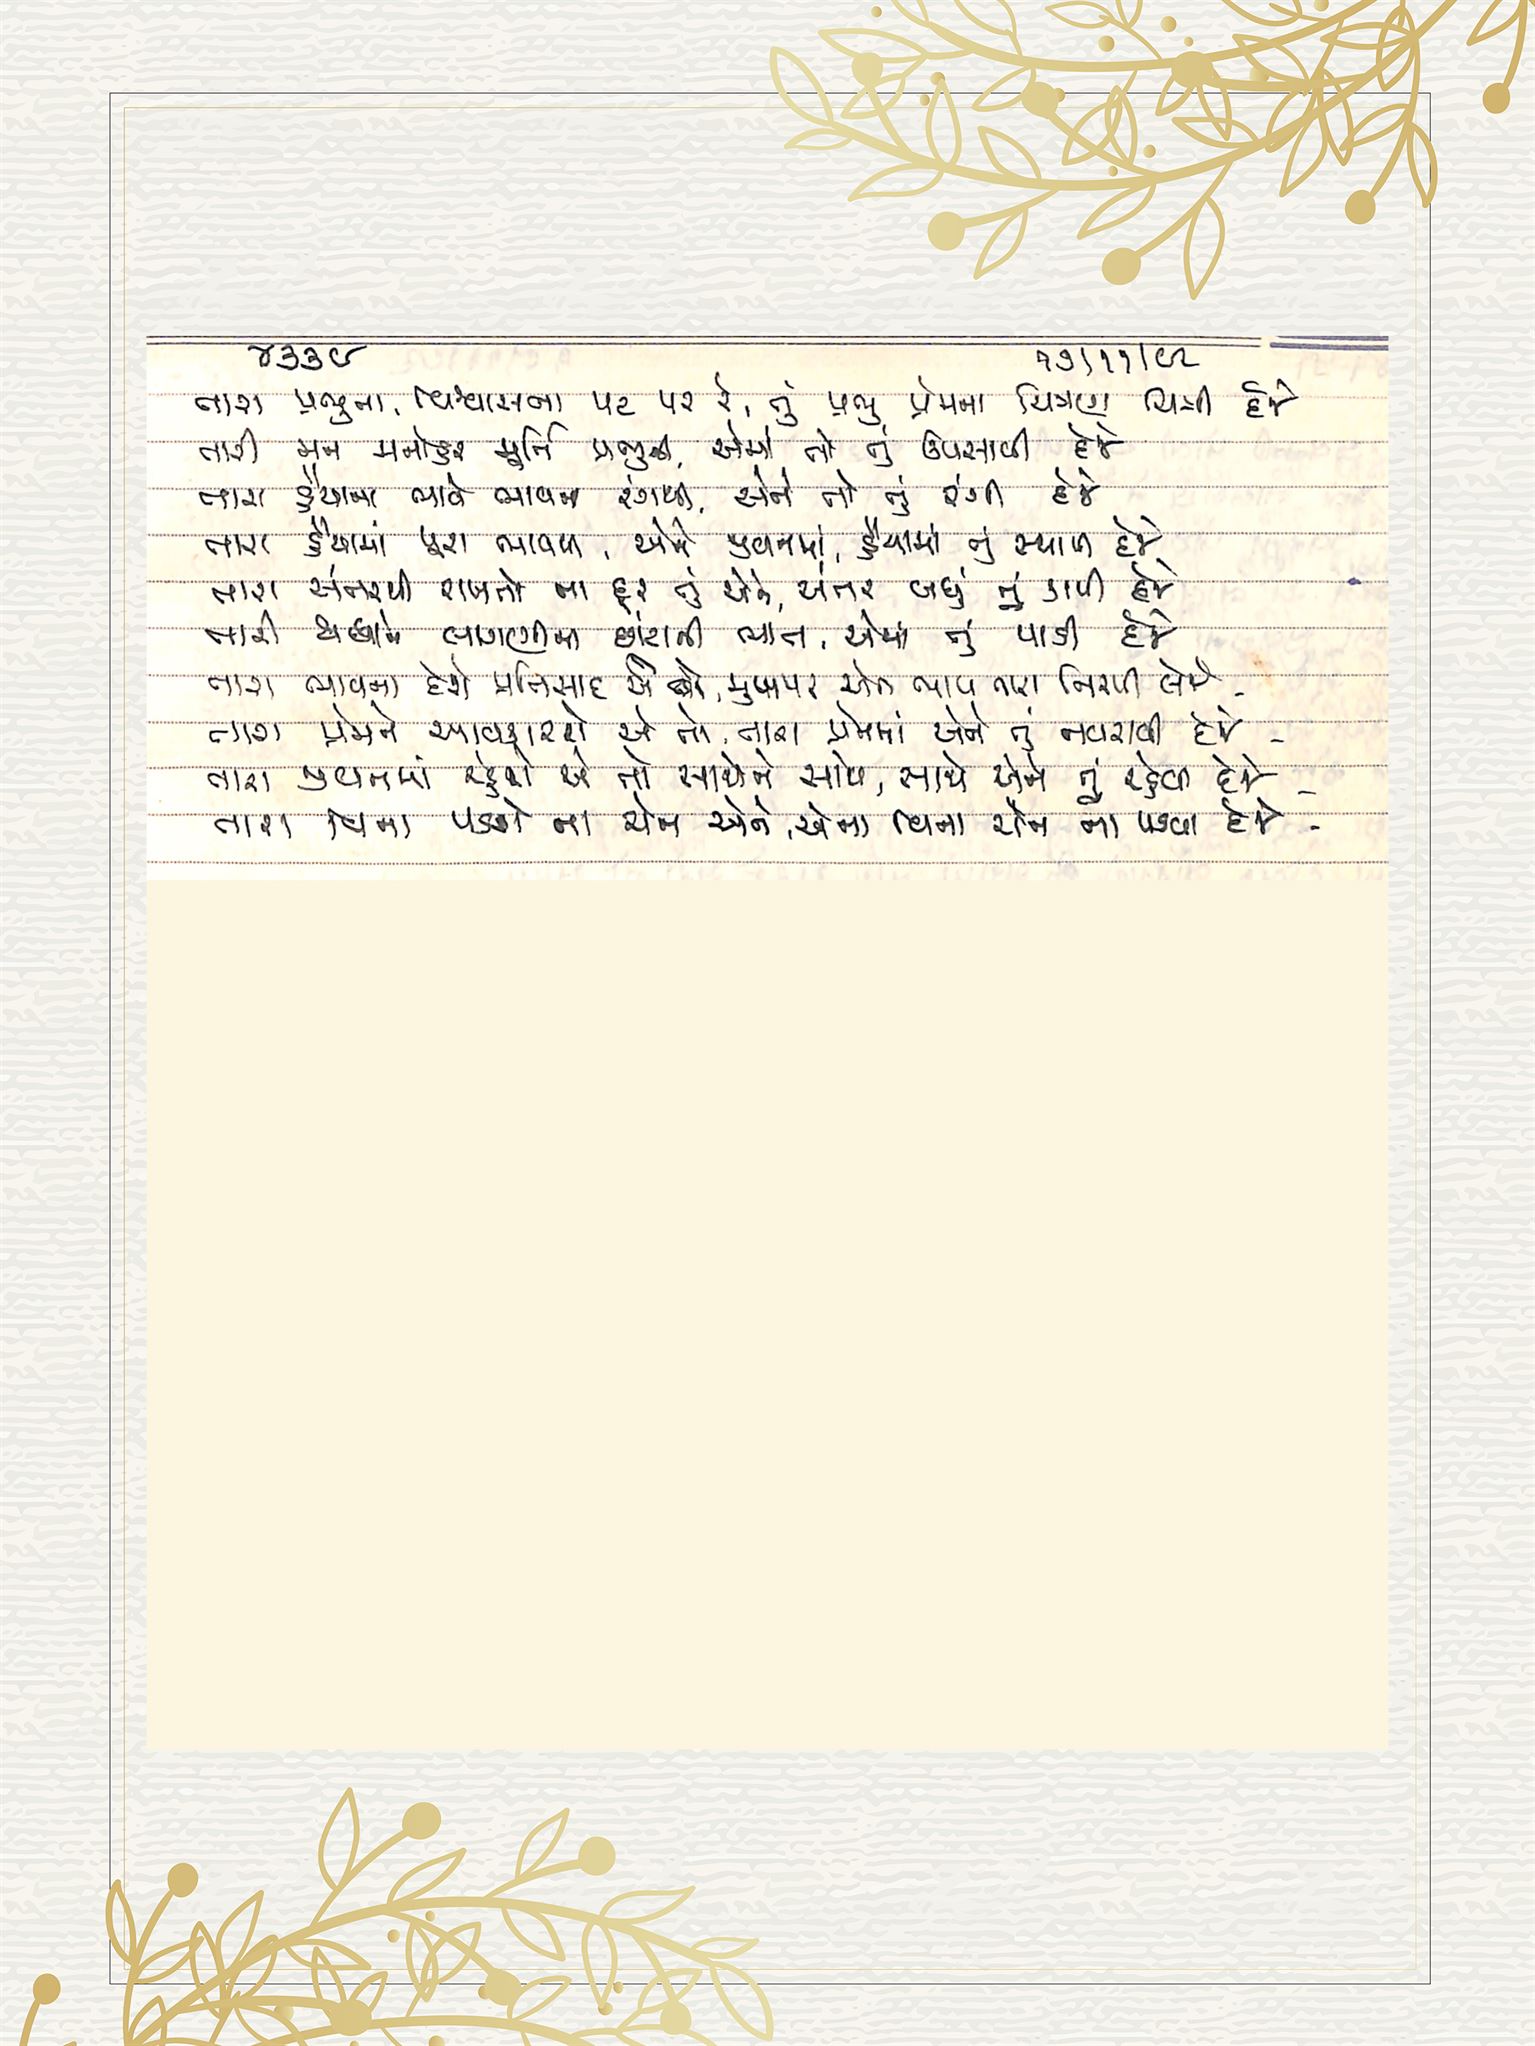 ૪૩૩૯ ૧૭/૧૧/૯૨
તારા પ્રભુના, વિશ્વાસના પટ પર રે, તું પ્રભુ પ્રેમના ચિત્રણ ચિત્રી દેજે
તારી મન મનોહર મૂર્તિ પ્રભુની, એમાં તો તું ઉપસાવી દેજે
તારા હૈયાના ભાવે ભાવના રંગથી, એને તો તું રંગી દેજે
તારા હૈયામાં પૂરા ભાવથી, એને જીવનમાં, હૈયામાં તું સ્થાપી દેજે
તારા અંતરથી રાખતો ના દૂર તું એને, અંતર બધું તું કાપી દેજે
તારી લાગણીના ભાત, એમાં તું પાડી દેજે
તારા ભાવનો દેશે પ્રતિસાદ એ તો, મુખપર એના ભાવ તારા નિરખી લેજે -
તારા પ્રેમને આવકારશે એ તો, તારા પ્રેમમાં એને તું નવરાવી દેજે -
તારા જીવનમાં રહેશે એ તો સાથેને સાથે, સાથે એને તું રહેવા દેજે -
તારા વિના પડશે ના ચેન એને, એના વિના ચેન ના પડવા દેજે -